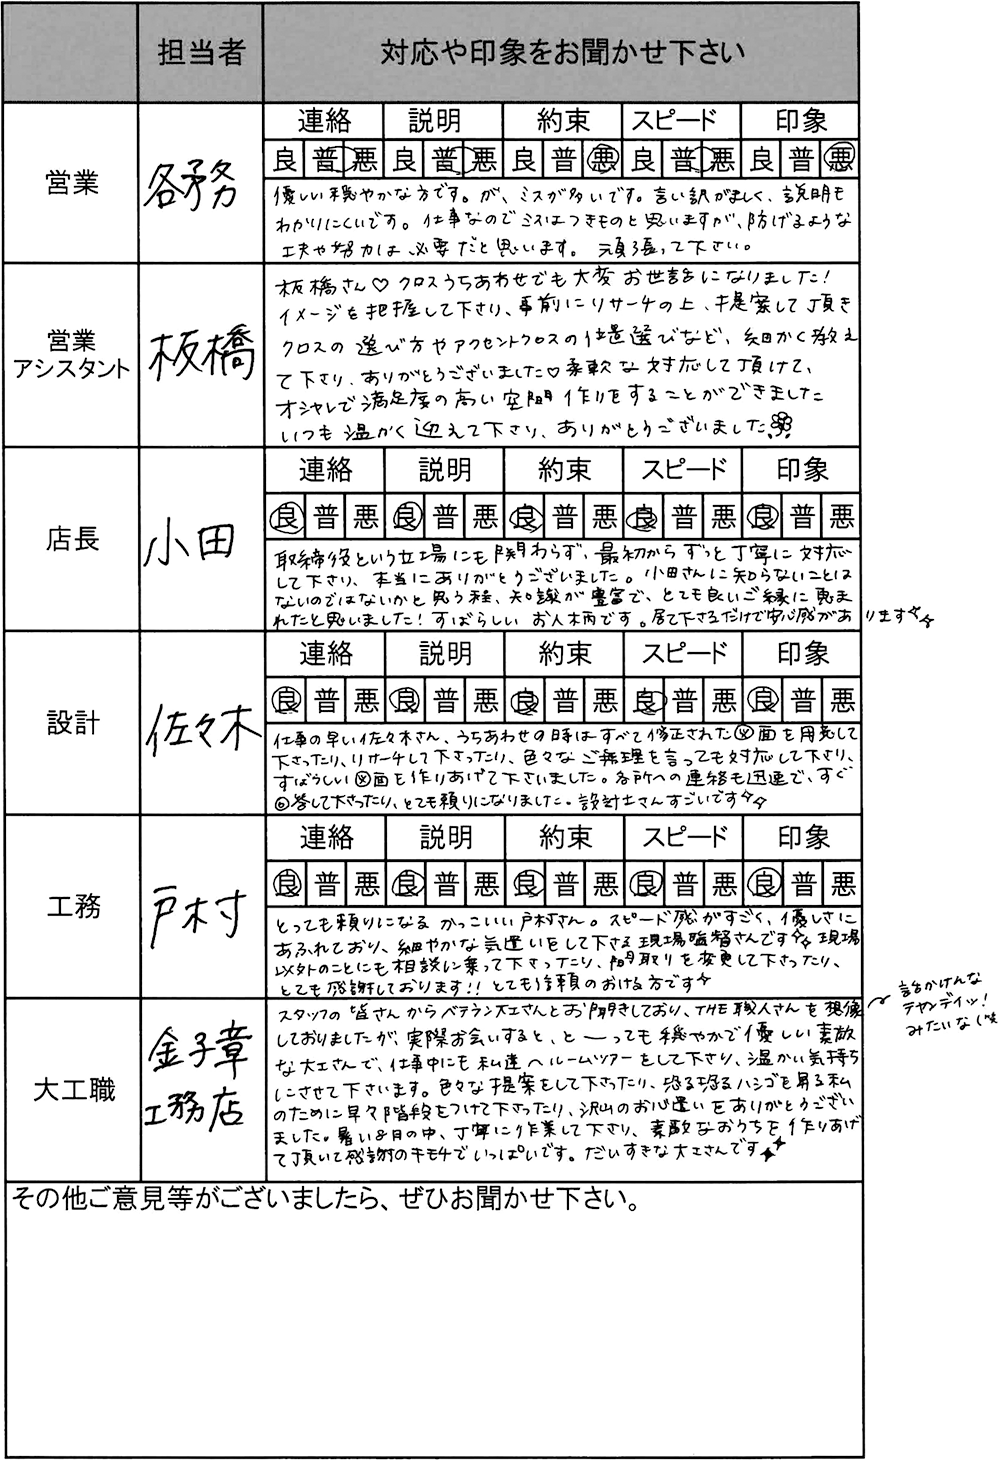 担当者 対応や印象をお聞かせ下さい
営業 各務
連絡 説明 約束 スピード 印象
良 普 悪 良 普 悪 良 普 悪 良 普 悪 良 普 悪
優しい穏やかな方です。が、ミスが多いです。言い訳がましく、説明も
わかりにくいです。仕事なのでミスはつきものと思いますが、防げるような
工夫や努力は必要だと思います。頑張って下さい。
営業
アシスタント 板橋
板橋さん♡クロスうちあわせでも大変お世話になりました!
イメージを把握して下さり、事前にリサーチの上、提案して頂き
クロスの選び方やアクセントクロスの位置選びなど、細かく教え
て下さり、ありがとうございました♡柔軟な対応して頂けて、
オシャレで満足度の高い空間作りをすることができました
いつも温かく迎えて下さり、ありがとうございました
店長 小田
連絡 説明 約束 スピード 印象
良 普 悪 良 普 悪 良 普 悪 良 普 悪 良 普 悪
取締役という立場にも関わらず、最初からずっと丁寧に対応
して下さり、本当にありがとうございました。小田さんに知らないことは
ないのではないかと思う程、知識が豊富で、とても良いご縁に恵ま
れたと思いました!すばらしいお人柄です。居て下さるだけで安心感があります☆☆
設計 佐々木
連絡 説明 約束 スピード 印象
良 普 悪 良 普 悪 良 普 悪 良 普 悪 良 普 悪
仕事の早い佐々木さん、うちあわせの時はすべて修正された図面を用意して
下さったり、リサーチして下さったり、色々なご無理を言っても対応して下さり、
すばらしい図面を作りあげて下さいました。各所への連絡も迅速で、すぐ
回答して下さったり、とても頼りになりました。設計士さんすごいです☆☆
工務 戸村
連絡 説明 約束 スピード 印象
良 普 悪 良 普 悪 良 普 悪 良 普 悪 良 普 悪
とっても頼りになるかっこいい戸村さん。スピード感がすごく、優しさに
あふれており、細やかな気遣いをして下さる現場監督さんです☆☆現場
以外のことにも相談に乗って下さったり、間取りを変更して下さったり、
とても感謝しております!!とても信頼のおける方です☆
大工職 金子章
工務店
スタッフの皆さんからベテラン大工さんとお聞きしており、THE職人さんを想像
しておりましたが、実際お会いすると、と〜っても穏やかで優しい素敵
な大工さんで、仕事中にも私達へルームツアーをして下さり、温かい気持ち
にさせて下さいます。色々な提案をして下さったり、恐る恐るハシゴを昇る私
のために早々階段をつけて下さったり、沢山のお心遣いをありがとうござい
ました。暑い8月の中、丁寧に作業して下さり、素敵なおうちを作りあげ
て頂いて感謝のキモチでいっぱいです。だいすきな大工さんです
話かけんな
テヤンディッ!
みたいな(笑
その他ご意見等がございましたら、ぜひお聞かせ下さい。